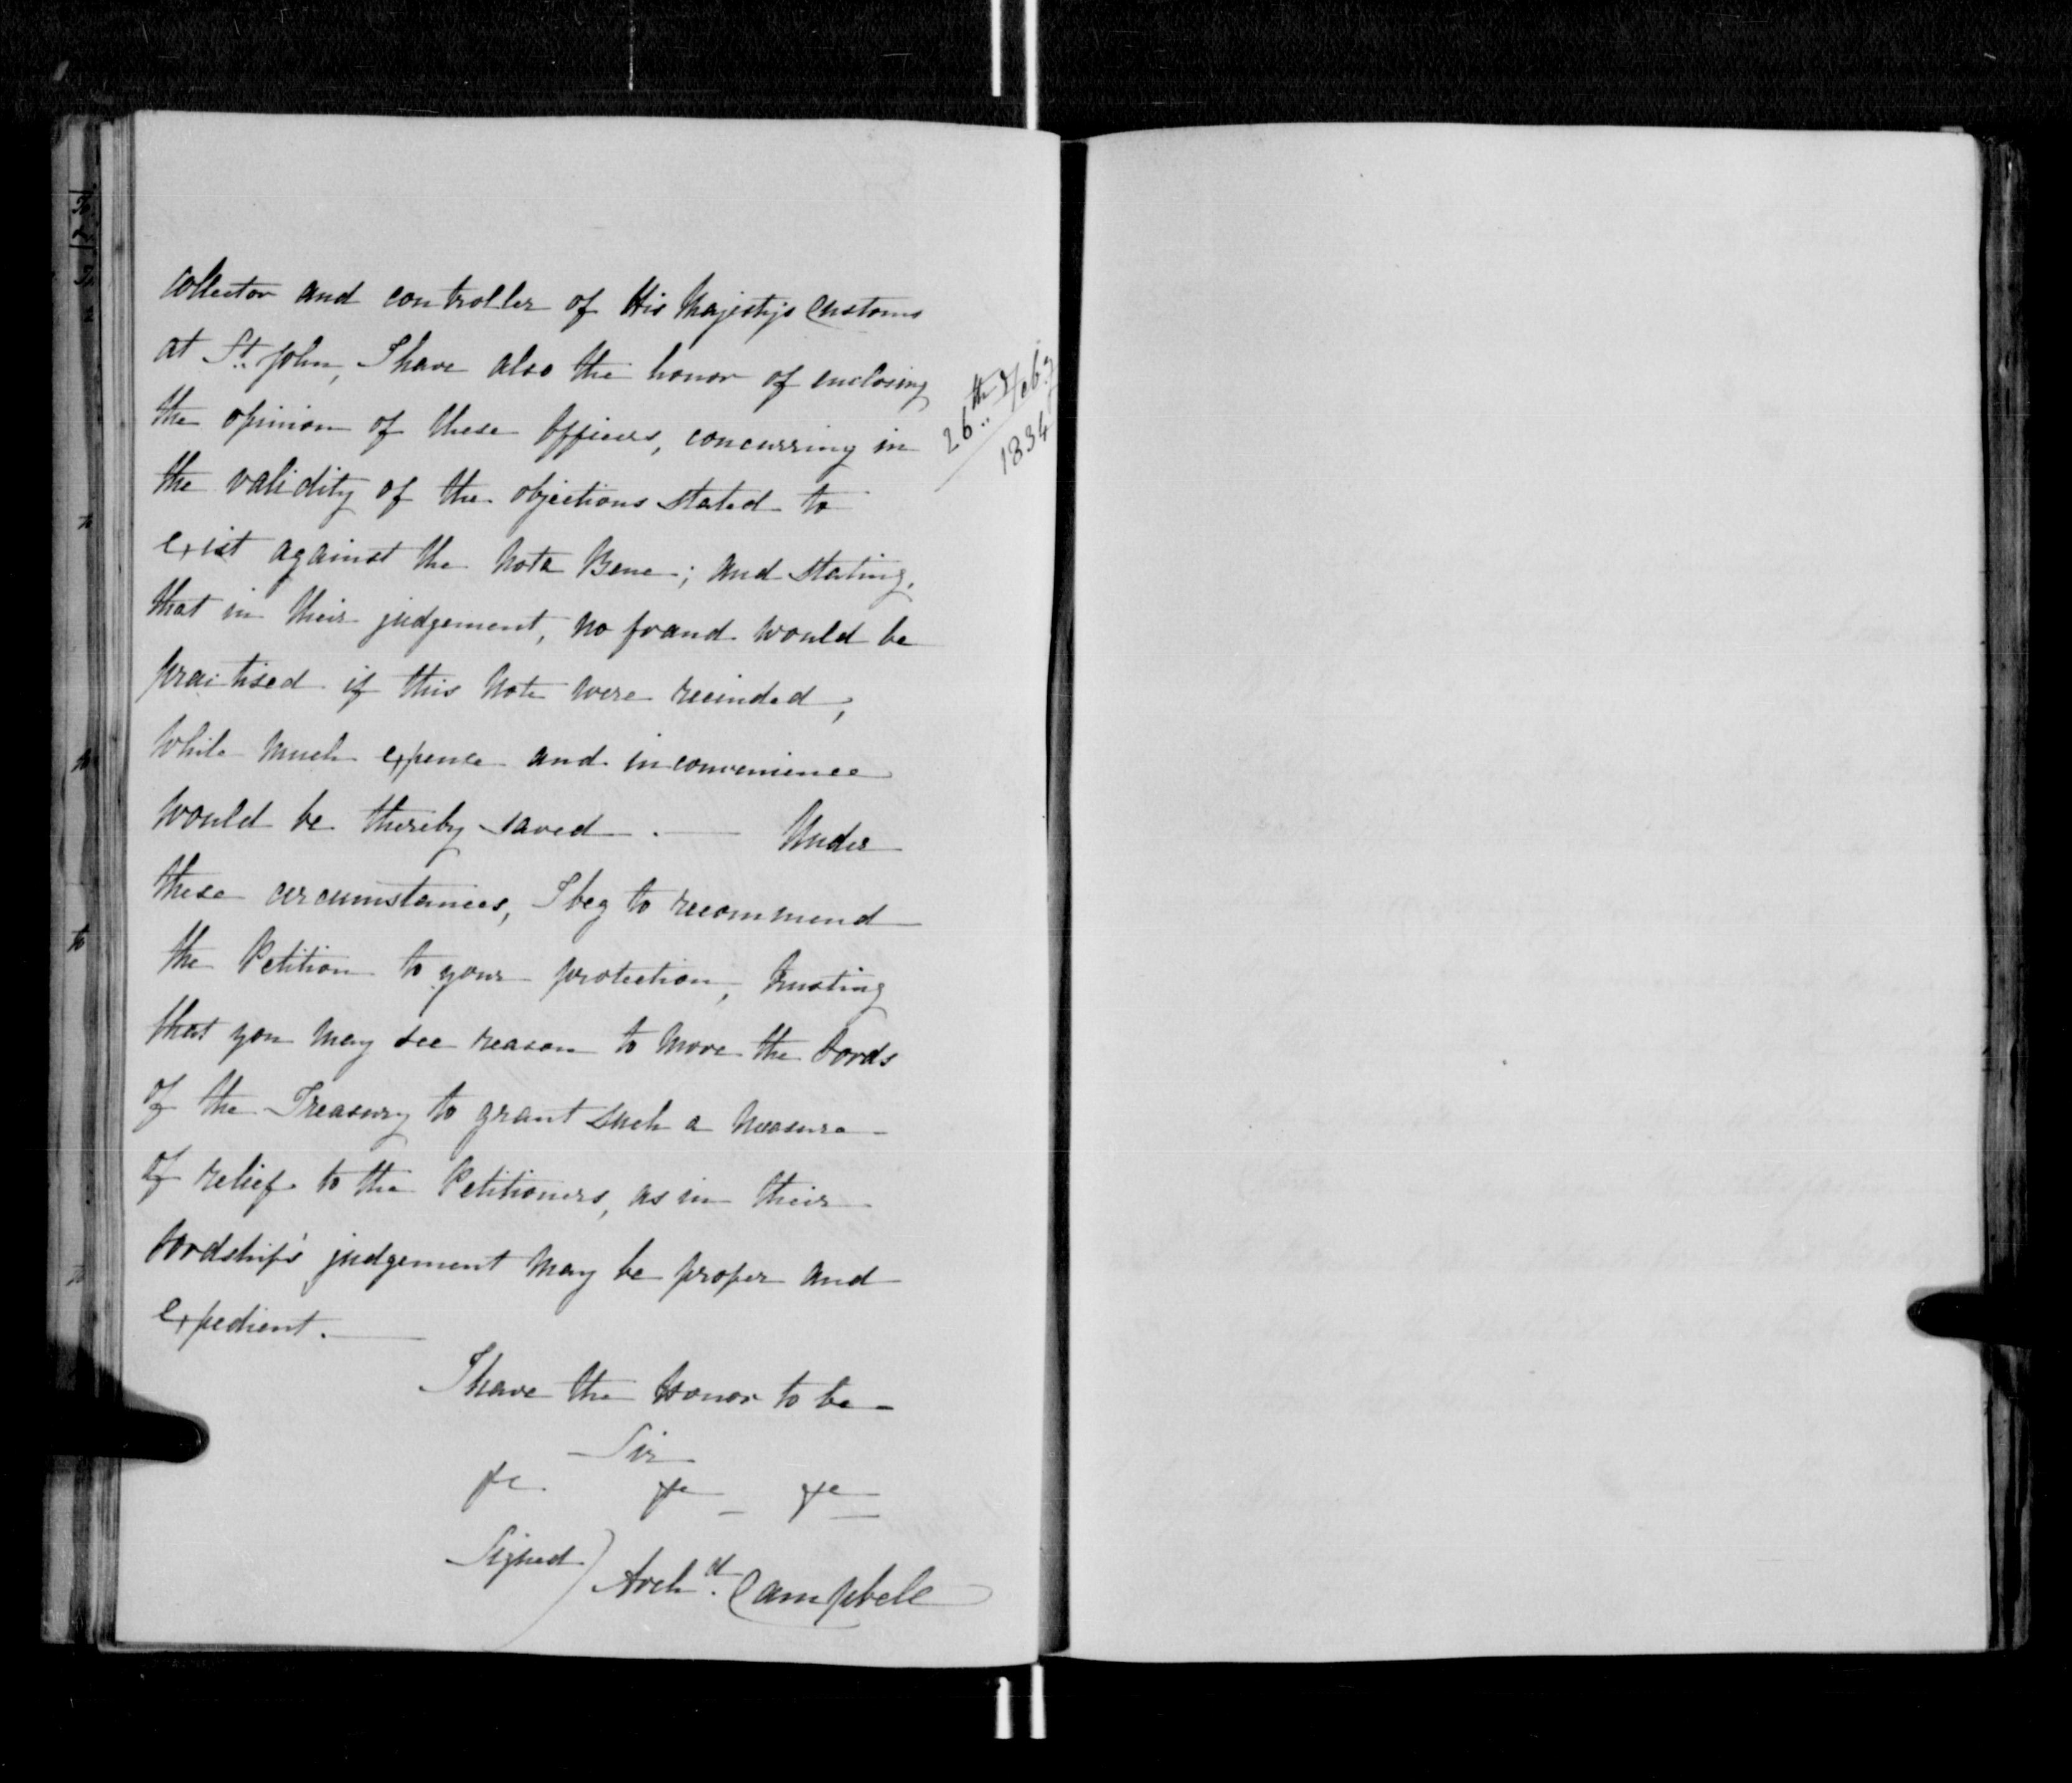 Collector and controller of His Majestys Customs
at St. John, I have also the honor of enclosing
26th Feby 1834
the opinion of these Officers, concurring in
the validity of the objections stated to
exist against the Nota Bene; and stating,
that in their judgement, no fraud would be
practised if this Note were recinded,
while much expence and inconvenience
would be thereby saved. — Under
these circumstances, I beg to recommend
the Petition to your protection, trusting
that you may see reason to move the Lords
of the Treasury to grant such a measure
of relief to the Petitioners, as in their
Lordship's judgement may be proper and
expedient. —
I have the Honor to be
Sir
&c &c &c
Signed) Archd. Campbell